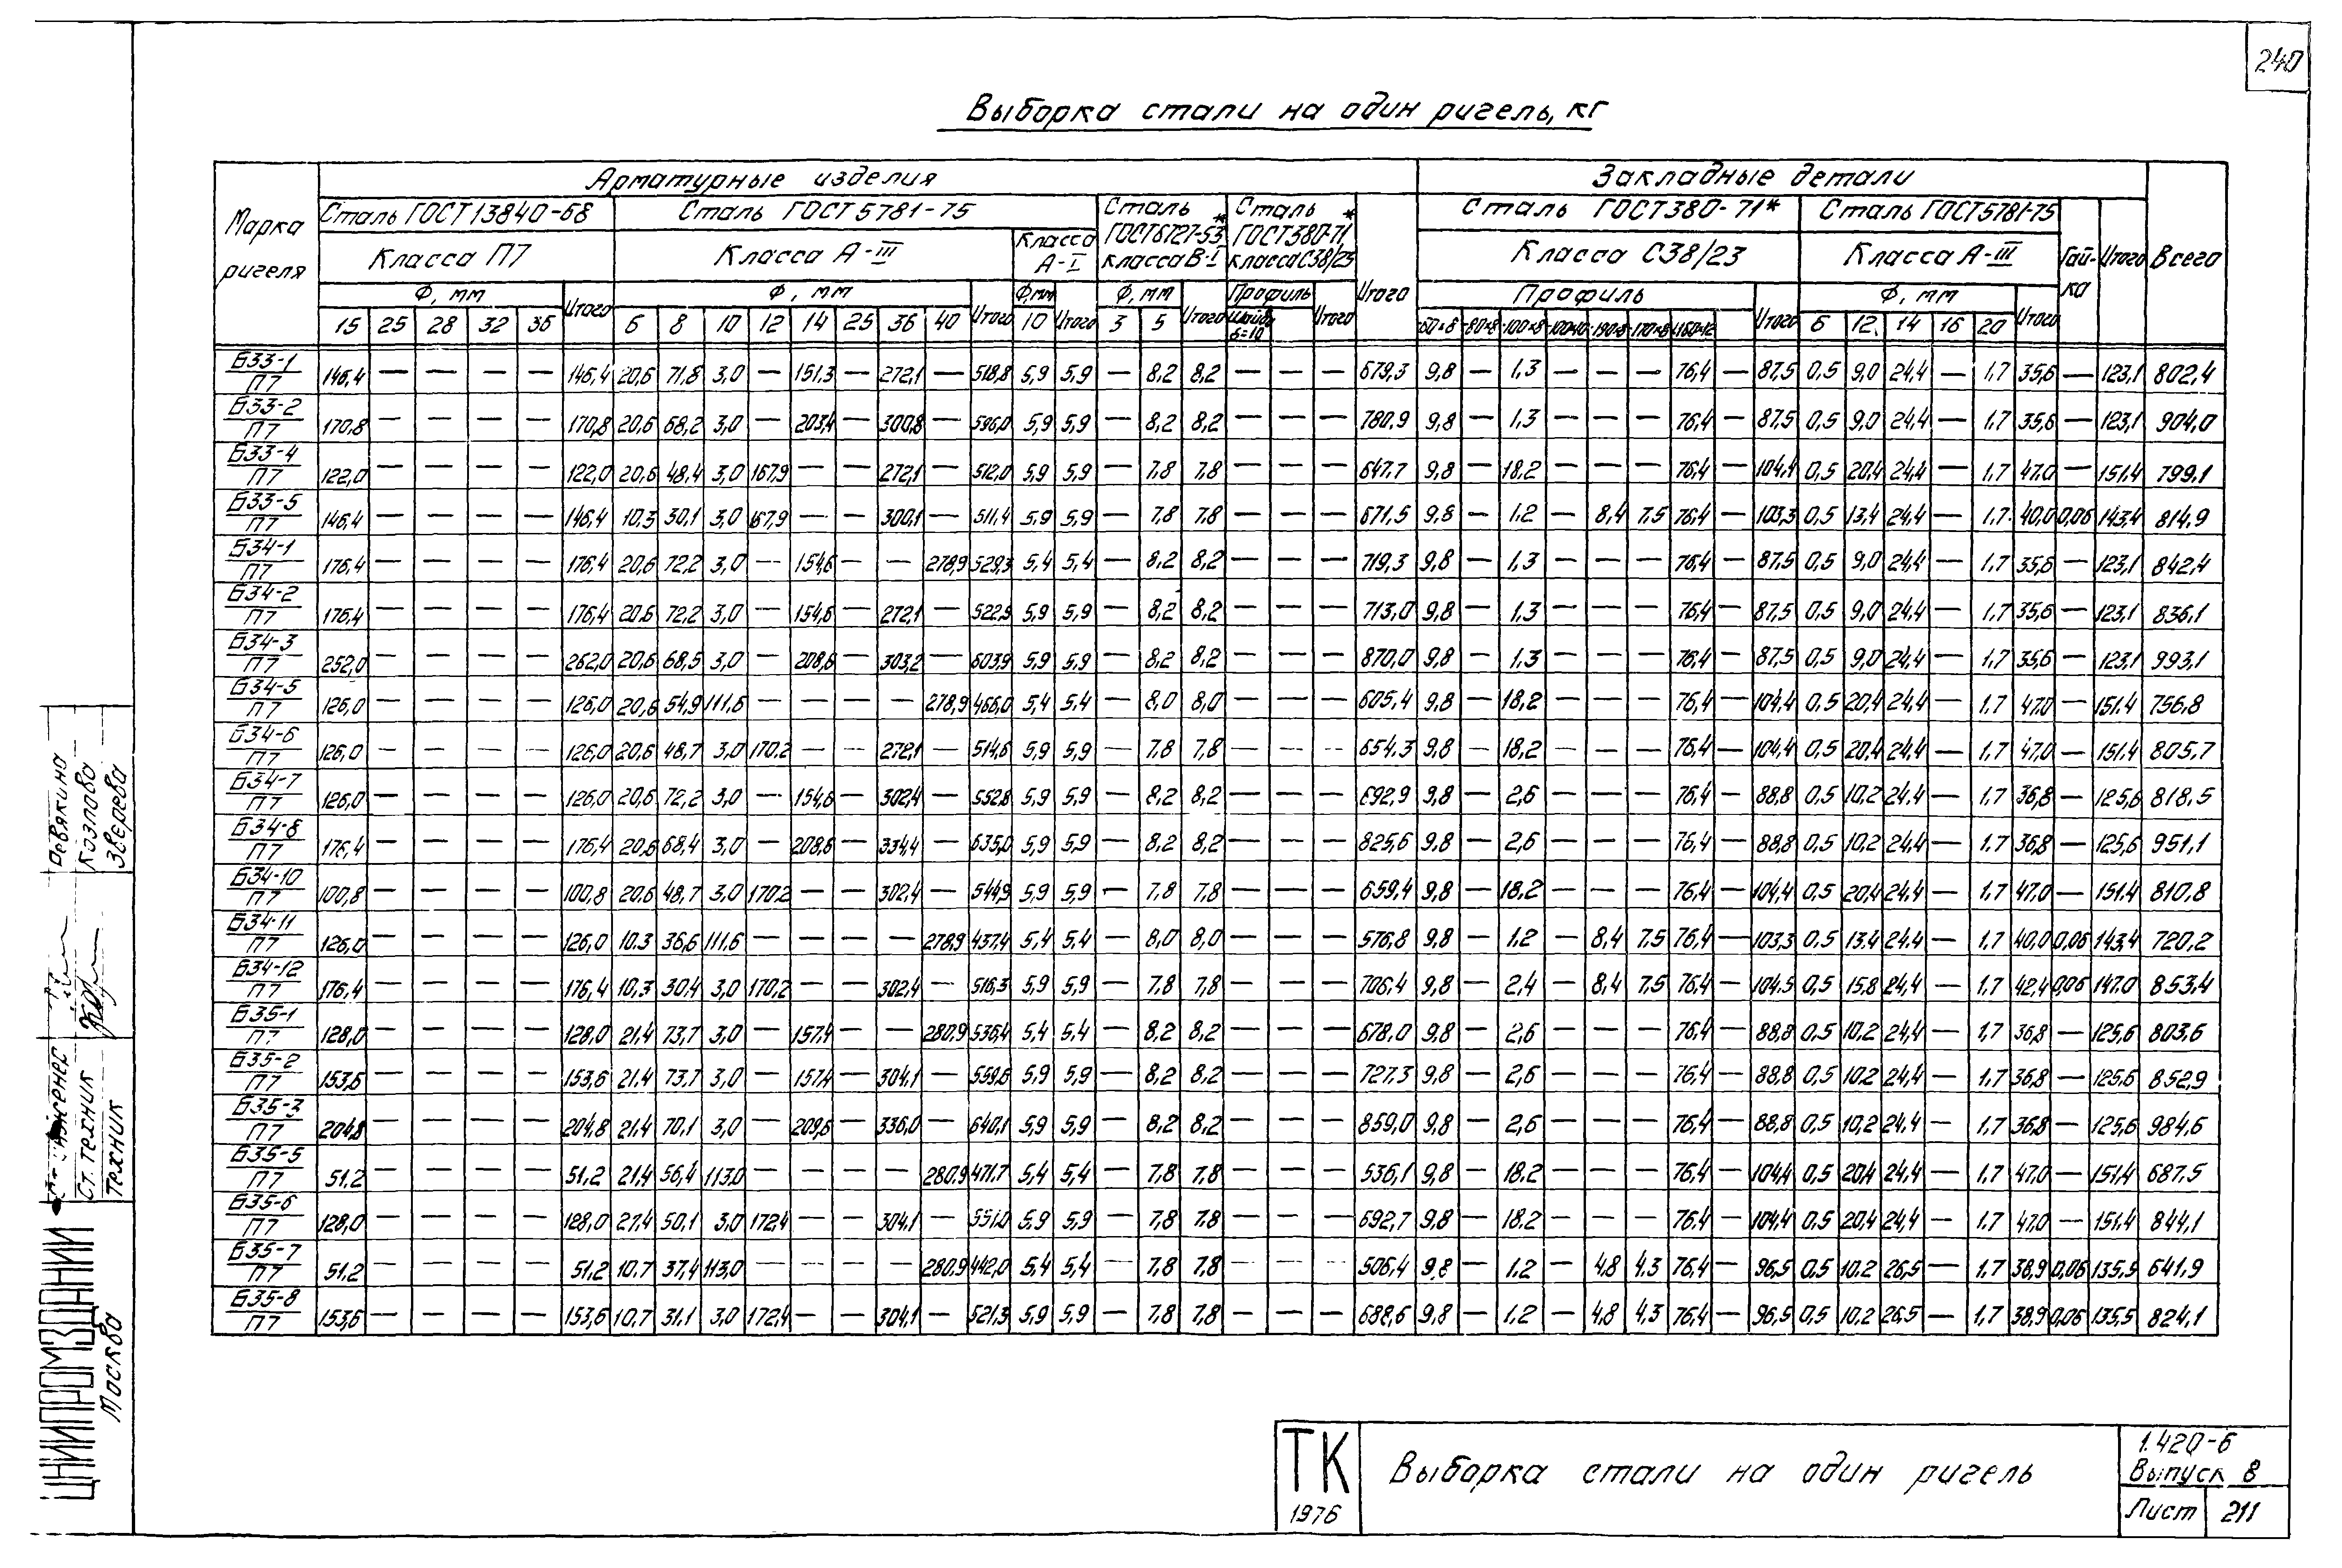 240
Выборка стали на один ригель, кг
Марка ригеля
Арматурные изделия
Закладные детали
Всего
Сталь ГОСТ 13840-68
Сталь ГОСТ 5781-75
Сталь ГОСТ 6727-53* класса В-I
Сталь ГОСТ 380-71* класса С38/23
Итого
Сталь ГОСТ 380-71*
Сталь ГОСТ 5781-75
Гайка
Итого
Класса П7
Класса А-III
Класса А-I
Класса С38/23
Класса А-III
Ф, мм
Итого
Ф, мм
Итого
Ф, мм
Итого
Ф, мм
Итого
Профиль
Итого
Профиль
Итого
Ф, мм
Итого
15 25 28 32 36 6 8 10 12 14 25 36 40 10 3 5 6 12 14 16 20
Б33-1/П7 146,4 — — — — 146,4 20,6 71,8 3,0 — 151,3 — 272,1 — 518,8 5,9 5,9 — 8,2 8,2 — — — 679,3 9,8 — 1,3 — — — 76,4 — 87,5 0,5 9,0 24,4 — 1,7 35,6 — 123,1 802,4
Б33-2/П7 170,8 — — — — 170,8 20,6 68,2 3,0 — 203,4 — 300,8 — 596,0 5,9 5,9 — 8,2 8,2 — — — 780,9 9,8 — 1,3 — — — 76,4 — 87,5 0,5 9,0 24,4 — 1,7 35,6 — 123,1 904,0
Б33-4/П7 122,0 — — — — 122,0 20,6 48,4 3,0 167,9 — — 272,1 — 512,0 5,9 5,9 — 7,8 7,8 — — — 647,7 9,8 — 18,2 — — — 76,4 — 104,4 0,5 20,4 24,4 — 1,7 47,0 — 151,4 799,1
Б33-5/П7 146,4 — — — — 146,4 10,3 30,1 3,0 167,9 — — 300,1 — 511,4 5,9 5,9 — 7,8 7,8 — — — 671,5 9,8 — 1,2 — 8,4 7,5 76,4 — 103,3 0,5 13,4 24,4 — 1,7 40,0 0,06 143,4 814,9
Б34-1/П7 176,4 — — — — 176,4 20,6 72,2 3,0 — 154,6 — — 278,9 529,3 5,4 5,4 — 8,2 8,2 — — — 719,3 9,8 — 1,3 — — — 76,4 — 87,5 0,5 9,0 24,4 — 1,7 35,6 — 123,1 842,4
Б34-2/П7 176,4 — — — — 176,4 20,6 72,2 3,0 — 154,6 — 272,1 — 522,5 5,9 5,9 — 8,2 8,2 — — — 713,0 9,8 — 1,3 — — — 76,4 — 87,5 0,5 9,0 24,4 — 1,7 35,6 — 123,1 836,1
Б34-3/П7 252,0 — — — — 262,0 20,6 68,5 3,0 — 208,6 — 303,2 — 603,9 5,9 5,9 — 8,2 8,2 — — — 870,0 9,8 — 1,3 — — — 76,4 — 87,5 0,5 9,0 24,4 — 1,7 35,6 — 123,1 993,1
Б34-5/П7 126,0 — — — — 126,0 20,6 54,9 111,6 — — — — 278,9 466,0 5,4 5,4 — 8,0 8,0 — — — 605,4 9,8 — 18,2 — — — 76,4 — 104,4 0,5 20,4 24,4 — 1,7 47,0 — 151,4 756,8
Б34-6/П7 126,0 — — — — 126,0 20,6 48,7 3,0 170,2 — — 272,1 — 514,6 5,9 5,9 — 7,8 7,8 — — — 654,3 9,8 — 18,2 — — — 76,4 — 104,4 0,5 20,4 24,4 — 1,7 47,0 — 151,4 805,7
Б34-7/П7 126,0 — — — — 126,0 20,6 72,2 3,0 — 154,6 — 302,4 — 552,8 5,9 5,9 — 8,2 8,2 — — — 692,9 9,8 — 2,6 — — — 76,4 — 88,8 0,5 10,2 24,4 — 1,7 36,8 — 125,6 818,5
Б34-8/П7 176,4 — — — — 176,4 20,6 68,4 3,0 — 208,6 — 334,4 — 635,0 5,9 5,9 — 8,2 8,2 — — — 825,6 9,8 — 2,6 — — — 76,4 — 88,8 0,5 10,2 24,4 — 1,7 36,8 — 125,6 951,1
Б34-10/П7 100,8 — — — — 100,8 20,6 48,7 3,0 170,2 — — 302,4 — 544,9 5,9 5,9 — 7,8 7,8 — — — 659,4 9,8 — 18,2 — — — 76,4 — 104,4 0,5 20,4 24,4 — 1,7 47,0 — 151,4 810,8
Б34-11/П7 126,0 — — — — 126,0 10,3 36,6 111,6 — — — — 278,9 437,4 5,4 5,4 — 8,0 8,0 — — — 576,8 9,8 — 1,2 — 8,4 7,5 76,4 — 103,3 0,5 13,4 24,4 — 1,7 40,0 0,06 143,4 720,2
Б34-12/П7 176,4 — — — — 176,4 10,3 30,4 3,0 170,2 — — 302,4 — 516,3 5,9 5,9 — 7,8 7,8 — — — 706,4 9,8 — 2,4 — 8,4 7,5 76,4 — 104,5 0,5 15,8 24,4 — 1,7 42,4 0,06 147,0 853,4
Б35-1/П7 128,0 — — — — 128,0 21,4 73,7 3,0 — 157,4 — — 280,9 536,4 5,4 5,4 — 8,2 8,2 — — — 678,0 9,8 — 2,6 — — — 76,4 — 88,8 0,5 10,2 24,4 — 1,7 36,8 — 125,6 803,6
Б35-2/П7 153,6 — — — — 153,6 21,4 73,7 3,0 — 157,4 — 304,1 — 559,6 5,9 5,9 — 8,2 8,2 — — — 727,3 9,8 — 2,6 — — — 76,4 — 88,8 0,5 10,2 24,4 — 1,7 36,8 — 125,6 852,9
Б35-3/П7 204,8 — — — — 204,8 21,4 70,1 3,0 — 209,6 — 336,0 — 640,1 5,9 5,9 — 8,2 8,2 — — — 859,0 9,8 — 2,6 — — — 76,4 — 88,8 0,5 10,2 24,4 — 1,7 36,8 — 125,6 984,6
Б35-5/П7 51,2 — — — — 51,2 21,4 56,4 113,0 — — — — 280,9 471,7 5,4 5,4 — 7,8 7,8 — — — 536,1 9,8 — 18,2 — — — 76,4 — 104,4 0,5 20,4 24,4 — 1,7 47,0 — 151,4 687,5
Б35-6/П7 128,0 — — — — 128,0 21,4 50,1 3,0 172,4 — — 304,1 — 551,0 5,9 5,9 — 7,8 7,8 — — — 692,7 9,8 — 18,2 — — — 76,4 — 104,4 0,5 20,4 24,4 — 1,7 47,0 — 151,4 844,1
Б35-7/П7 51,2 — — — — 51,2 10,7 37,4 113,0 — — — — 280,9 442,0 5,4 5,4 — 7,8 7,8 — — — 506,4 9,8 — 1,2 — 4,8 4,3 76,4 — 96,5 0,5 10,2 26,5 — 1,7 38,9 0,06 135,5 641,9
Б35-8/П7 153,6 — — — — 153,6 10,7 31,1 3,0 172,4 — — 304,1 — 521,3 5,9 5,9 — 7,8 7,8 — — — 688,6 9,8 — 1,2 — 4,8 4,3 76,4 — 96,5 0,5 10,2 26,5 — 1,7 38,9 0,06 135,5 824,1
Ревякина
Козлова
Зверева
Ст. техник
Техник
ЦНИИПРОМЗДАНИЙ
Москва
ТК
1976
Выборка стали на один ригель
1.420-6
Выпуск 8
Лист 211